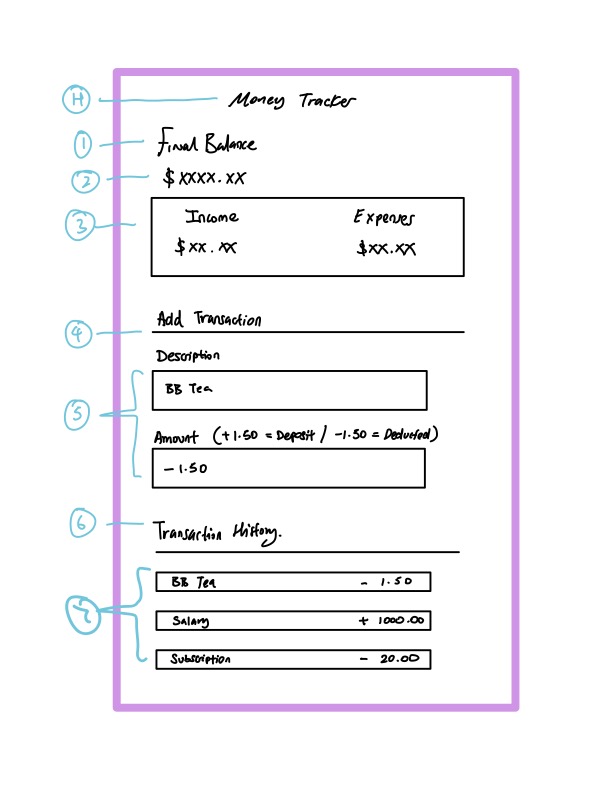 H
Money Tracker
1
Final Balance
2
$ xxxx.xx
3
Income Expenses
$ xx.xx $xx.xx
4
Add Transaction
Description
5
BB Tea
Amount (+1.50 = Deposit / -1.50 = Deducted)
- 1.50
6
Transaction History.
7
BB Tea - 1.50
Salary + 1000.00
Subscription - 20.00